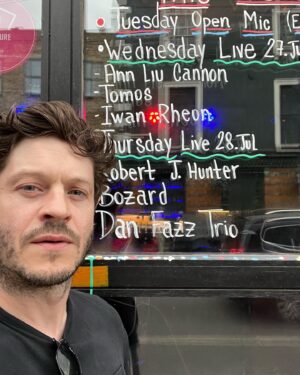 • Tuesday Open Mic (E
• Wednesday Live 27.Ju
Ann Liu Cannon
Tomos
Iwan Rheon
Thursday Live 28.Jul
Robert J. Hunter
Bozard
Dan Fazz Trio
URE